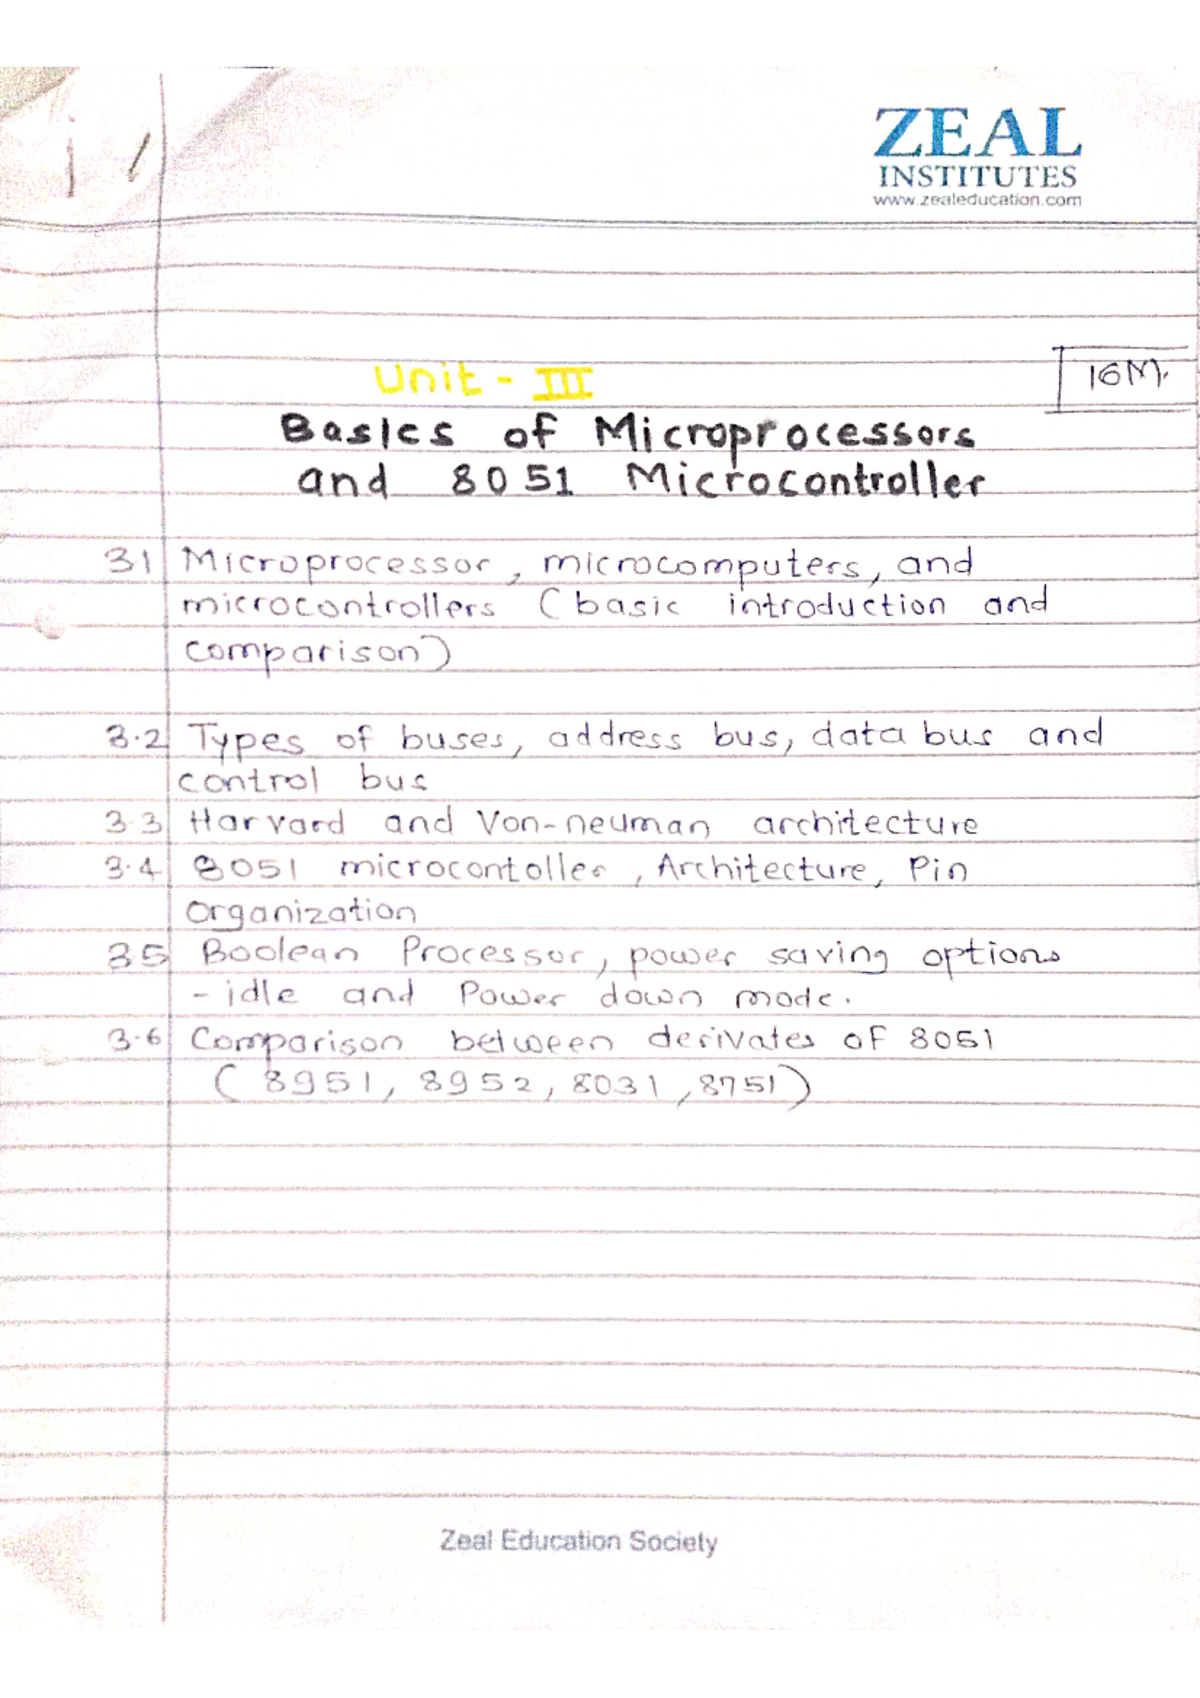 ZEAL
INSTITUTES
www.zealeducation.com
Unit - III
16M.
Basics of Microprocessors
and 8051 Microcontroller
3.1 Microprocessor, microcomputers, and
microcontrollers (basic introduction and
comparison)
3.2 Types of buses, address bus, data bus and
control bus
3.3 Harvard and Von-neuman architecture
3.4 8051 microcontoller, Architecture, Pin
Organization
3.5 Boolean Processor, power saving options
- idle and Power down mode.
3.6 Comparison between derivates of 8051
(8951, 8952, 8031, 8751)
Zeal Education Society